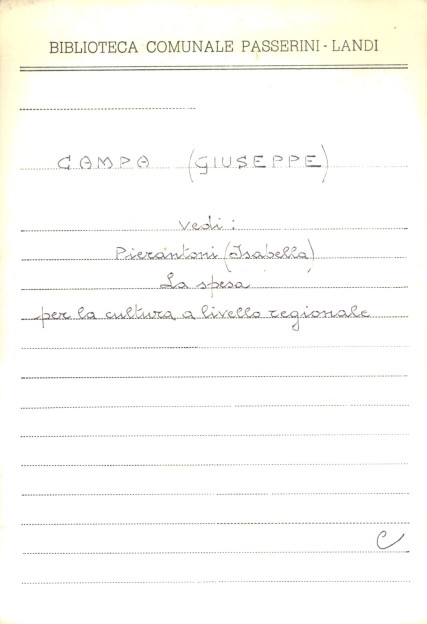 BIBLIOTECA COMUNALE PASSERINI - LANDI
CAMPA (GIUSEPPE)
vedi :
Pierantoni (Isabella)
La spesa
per la cultura a livello regionale
C